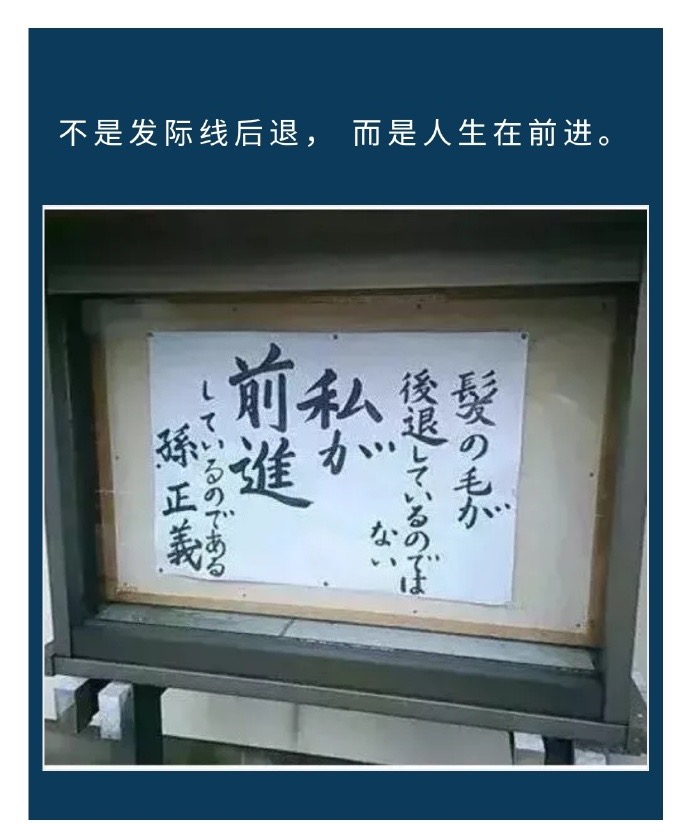 不是发际线后退， 而是人生在前进。
髪の毛が
後退しているのでは
ない
私が
前進
しているのである
孫正義